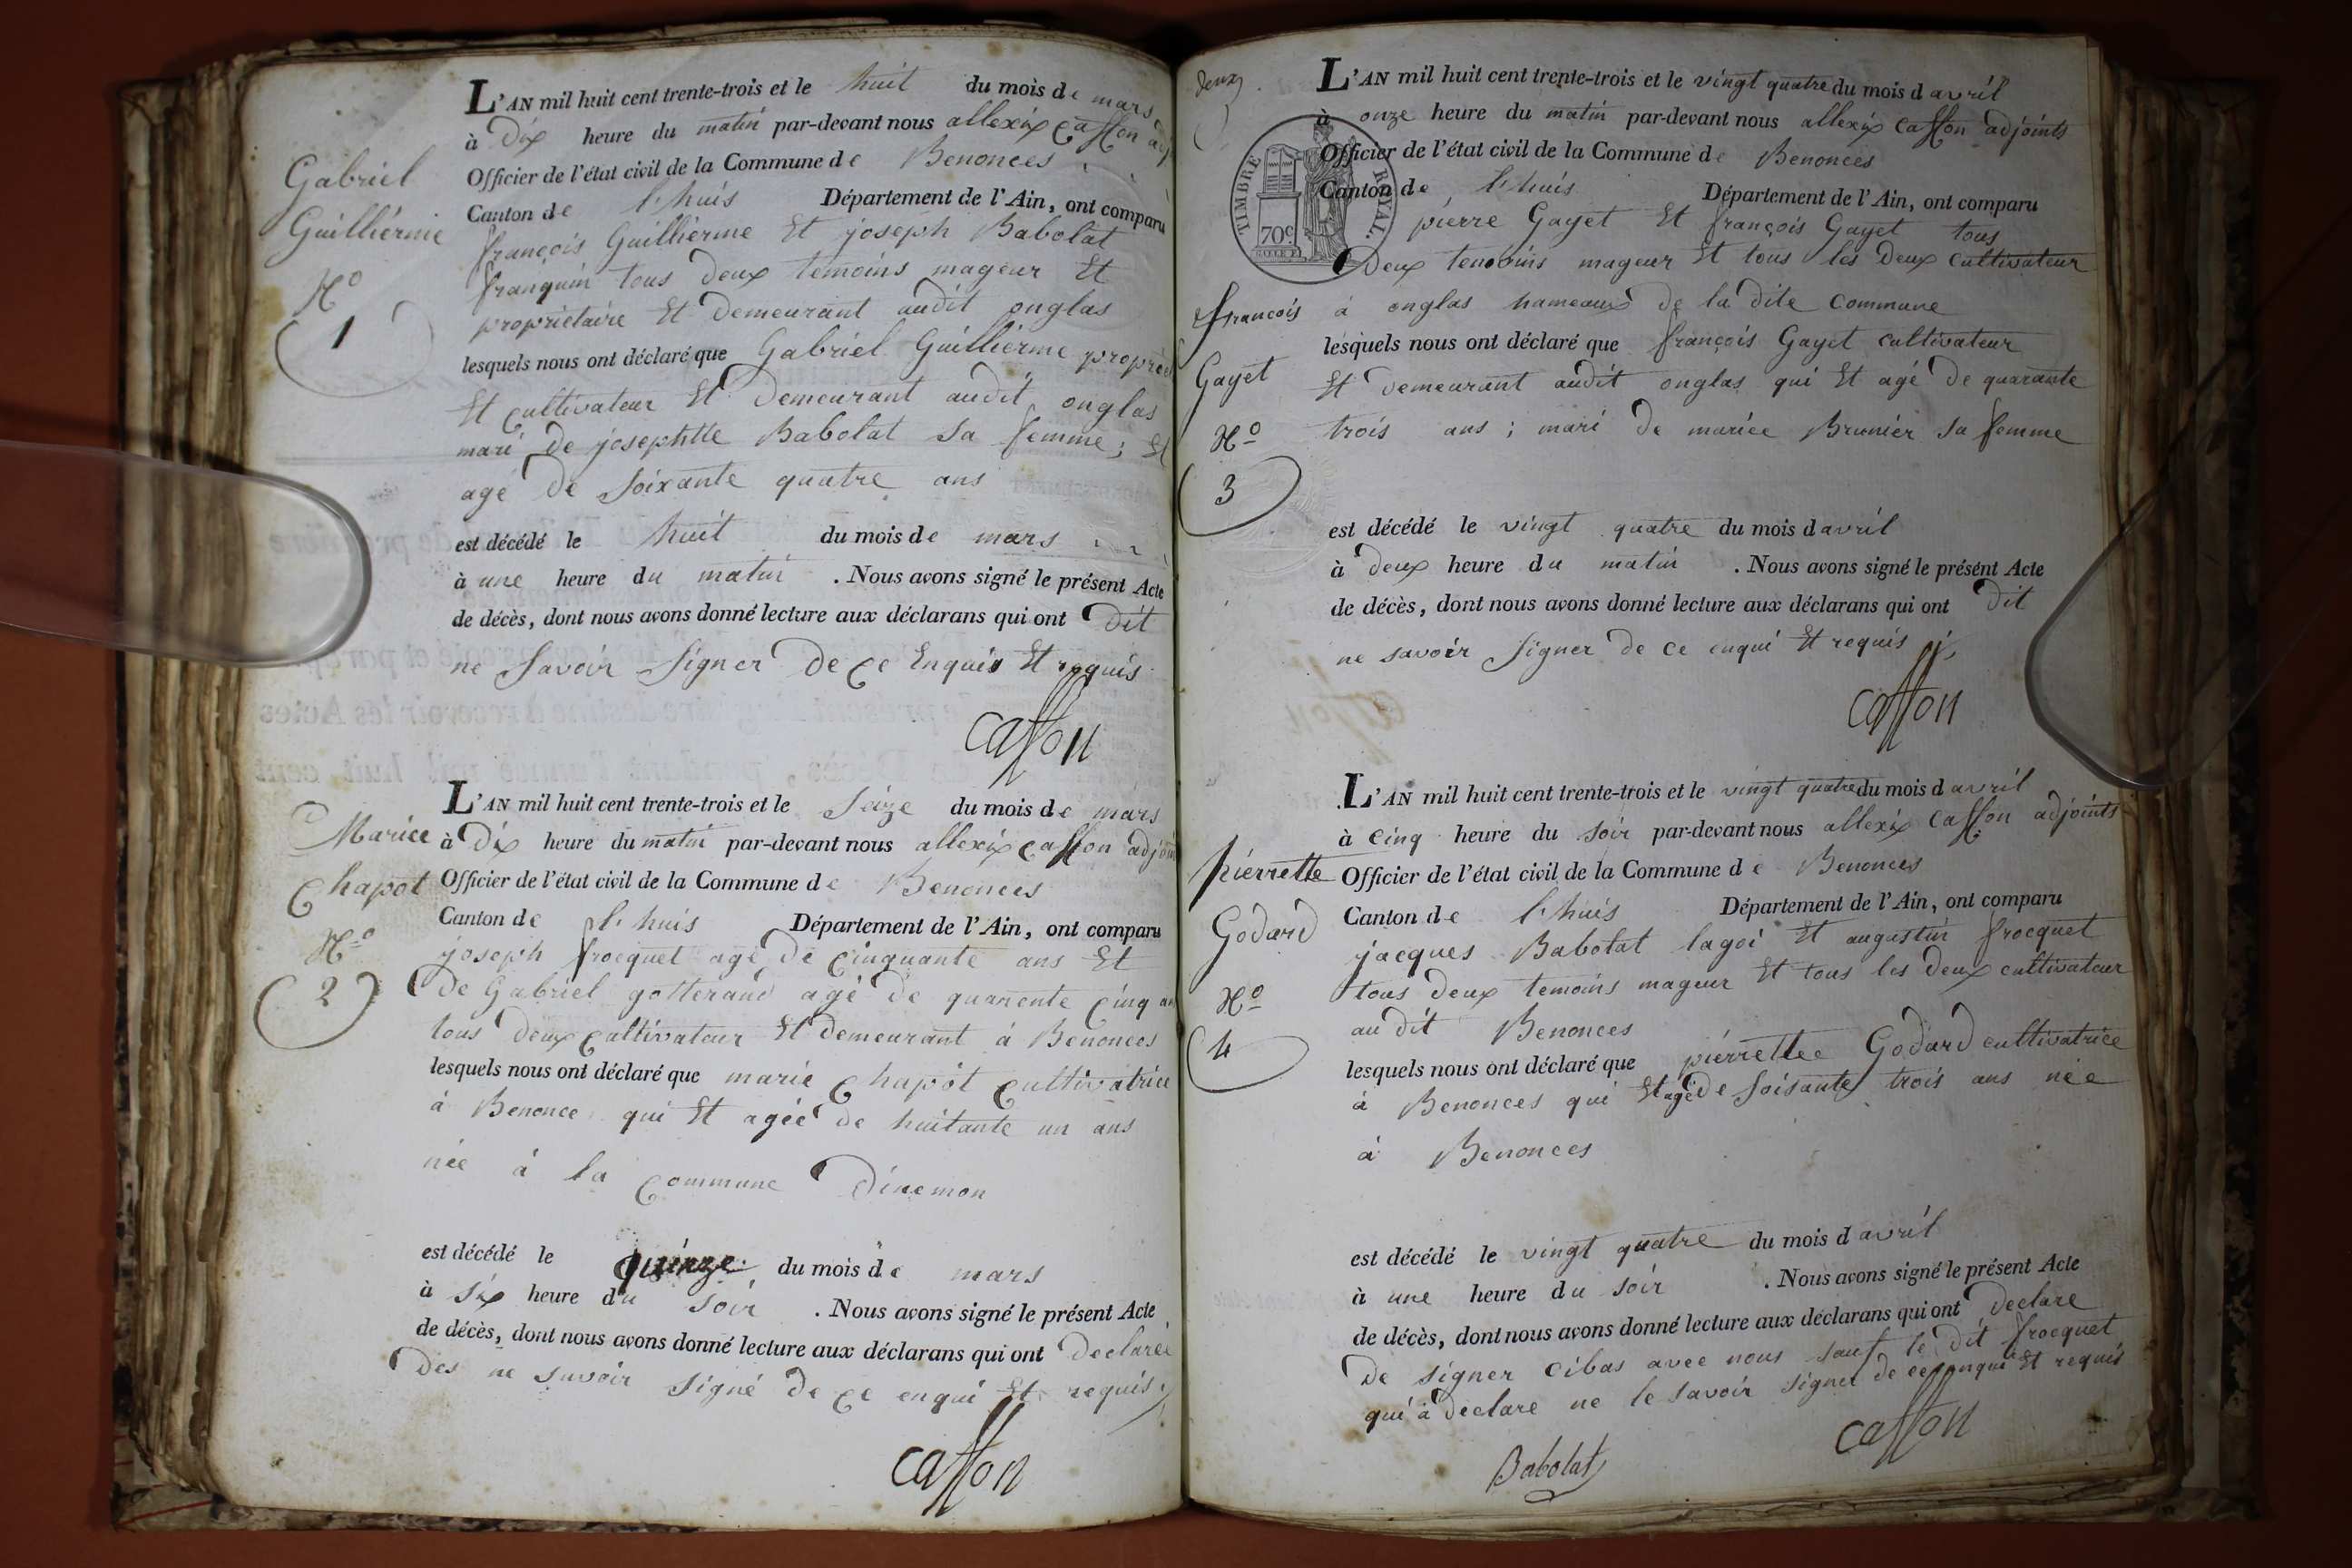 Gabriel
Guilliérme
N°
1
L'AN mil huit cent trente-trois et le huit du mois de mars
à Dix heure du matin par-devant nous allexix Casson adj
Officier de l'état civil de la Commune de Benonces
Canton de l'huis Département de l'Ain, ont comparu
françois Guillierme Et joseph Babolat
franquin tous Deux temoins mageur Et
proprietaire Et Demeurant audit onglas
lesquels nous ont déclaré que Gabriel Guilliérme propriet
Et Cultivateur Et Demeurant audit onglas
mari De josephtte Babolat Sa femme; Et
agé De Soixante quatre ans
est décédé le huit du mois de mars
à une heure du matin . Nous avons signé le présent Acte
de décès, dont nous avons donné lecture aux déclarans qui ont Dit
ne Savoir Signer De Ce Enquis Et requis
Casson
Mariee
Chapot
N°
2
L'AN mil huit cent trente-trois et le Seize du mois de mars
à Dix heure du matin par-devant nous allexix Casson adjoin
Officier de l'état civil de la Commune de Benonces
Canton de l'huis Département de l'Ain, ont comparu
joseph frocquet agé De Cinquante ans Et
De Gabriel gotterand agé De quarente Cinq an
tous Deux Cultivateur Et Demeurant à Benonces
lesquels nous ont déclaré que marie Chapot Cultivatrice
à Benonce qui Et agéé De huitante un ans
née à la Commune Dinemon
est décédé le quinze du mois de mars
à Six heure du Soir . Nous avons signé le présent Acte
de décès, dont nous avons donné lecture aux déclarans qui ont Declareé
Des ne Savoir Signé De Ce enqui Et requis
Casson
Deux
TIMBRE ROYAL.
70c
L'AN mil huit cent trente-trois et le vingt quatre du mois d avril
à onze heure du matin par-devant nous allexix Casson adjoints
Officier de l'état civil de la Commune de Benonces
Canton de l'huis Département de l'Ain, ont comparu
pierre Gayet Et françois Gayet tous
Deux temoins mageur Et tous les Deux Cultivateur
à onglas hameaux De la Dite Commune
françois
Gayet
N°
3
lesquels nous ont déclaré que françois Gayet Cultivateur
Et Demeurant audit onglas qui Et agé De quarante
trois ans; mari De mariée Brunier Sa femme
est décédé le vingt quatre du mois d avril
à Deux heure du matin . Nous avons signé le présent Acte
de décès, dont nous avons donné lecture aux déclarans qui ont Dit
ne savoir Signer De Ce enqui Et requis
Casson
Pierrette
Godard
N°
4
L'AN mil huit cent trente-trois et le vingt quatre du mois d avril
à Cinq heure du Soir par-devant nous allexix Casson adjoints
Officier de l'état civil de la Commune de Benonces
Canton de l'huis Département de l'Ain, ont comparu
jacques Babolat lagoi Et augustin frocquet
tous Deux temoins mageur Et tous les Deux Cultivateur
au Dit Benonces
lesquels nous ont déclaré que pierrettee Godard cultivatrice
à Benonces qui Et agé De Soisante trois ans née
à Benonces
est décédé le vingt quatre du mois d avril
à une heure du Soir . Nous avons signé le présent Acte
de décès, dont nous avons donné lecture aux déclarans qui ont Declare
De Signer Cibas avec nous Sauf le Dit frocquet
qui à Declare ne le Savoir Signer De ce enqui Et requis
Casson
Babolat